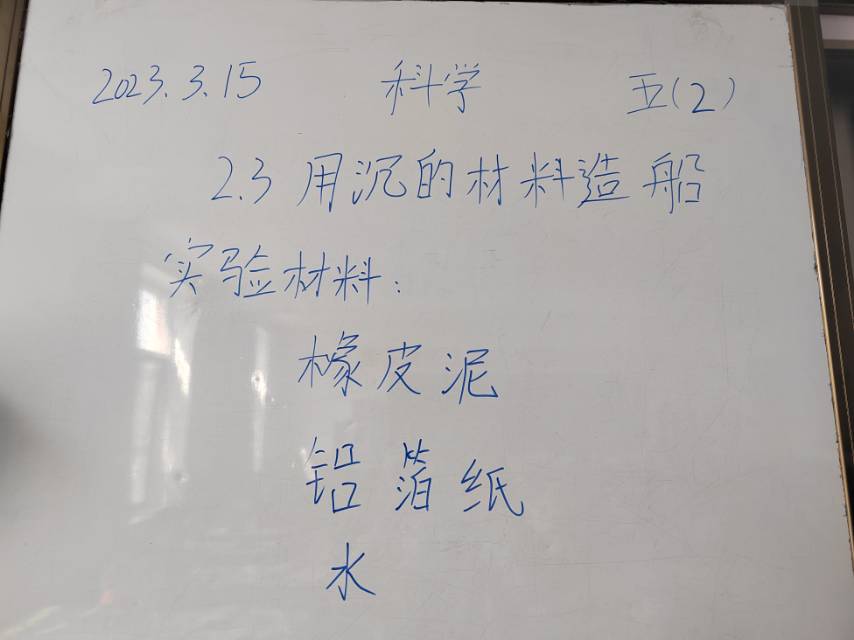 2023.3.15 科学 五(2)
2.3 用沉的材料造船
实验材料:
橡皮泥
铝箔纸
水